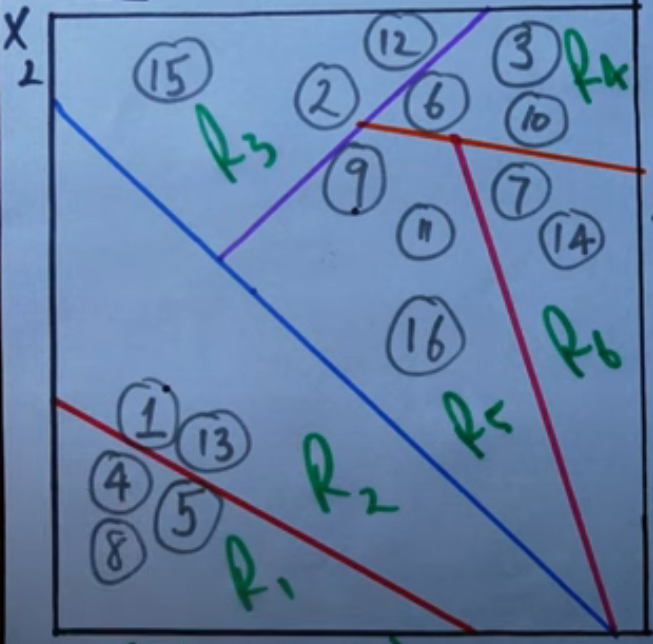 X
2
12
3
R4
15
2
6
10
R3
9
7
11
14
16
R6
R5
1
13
4
R2
5
8
R1